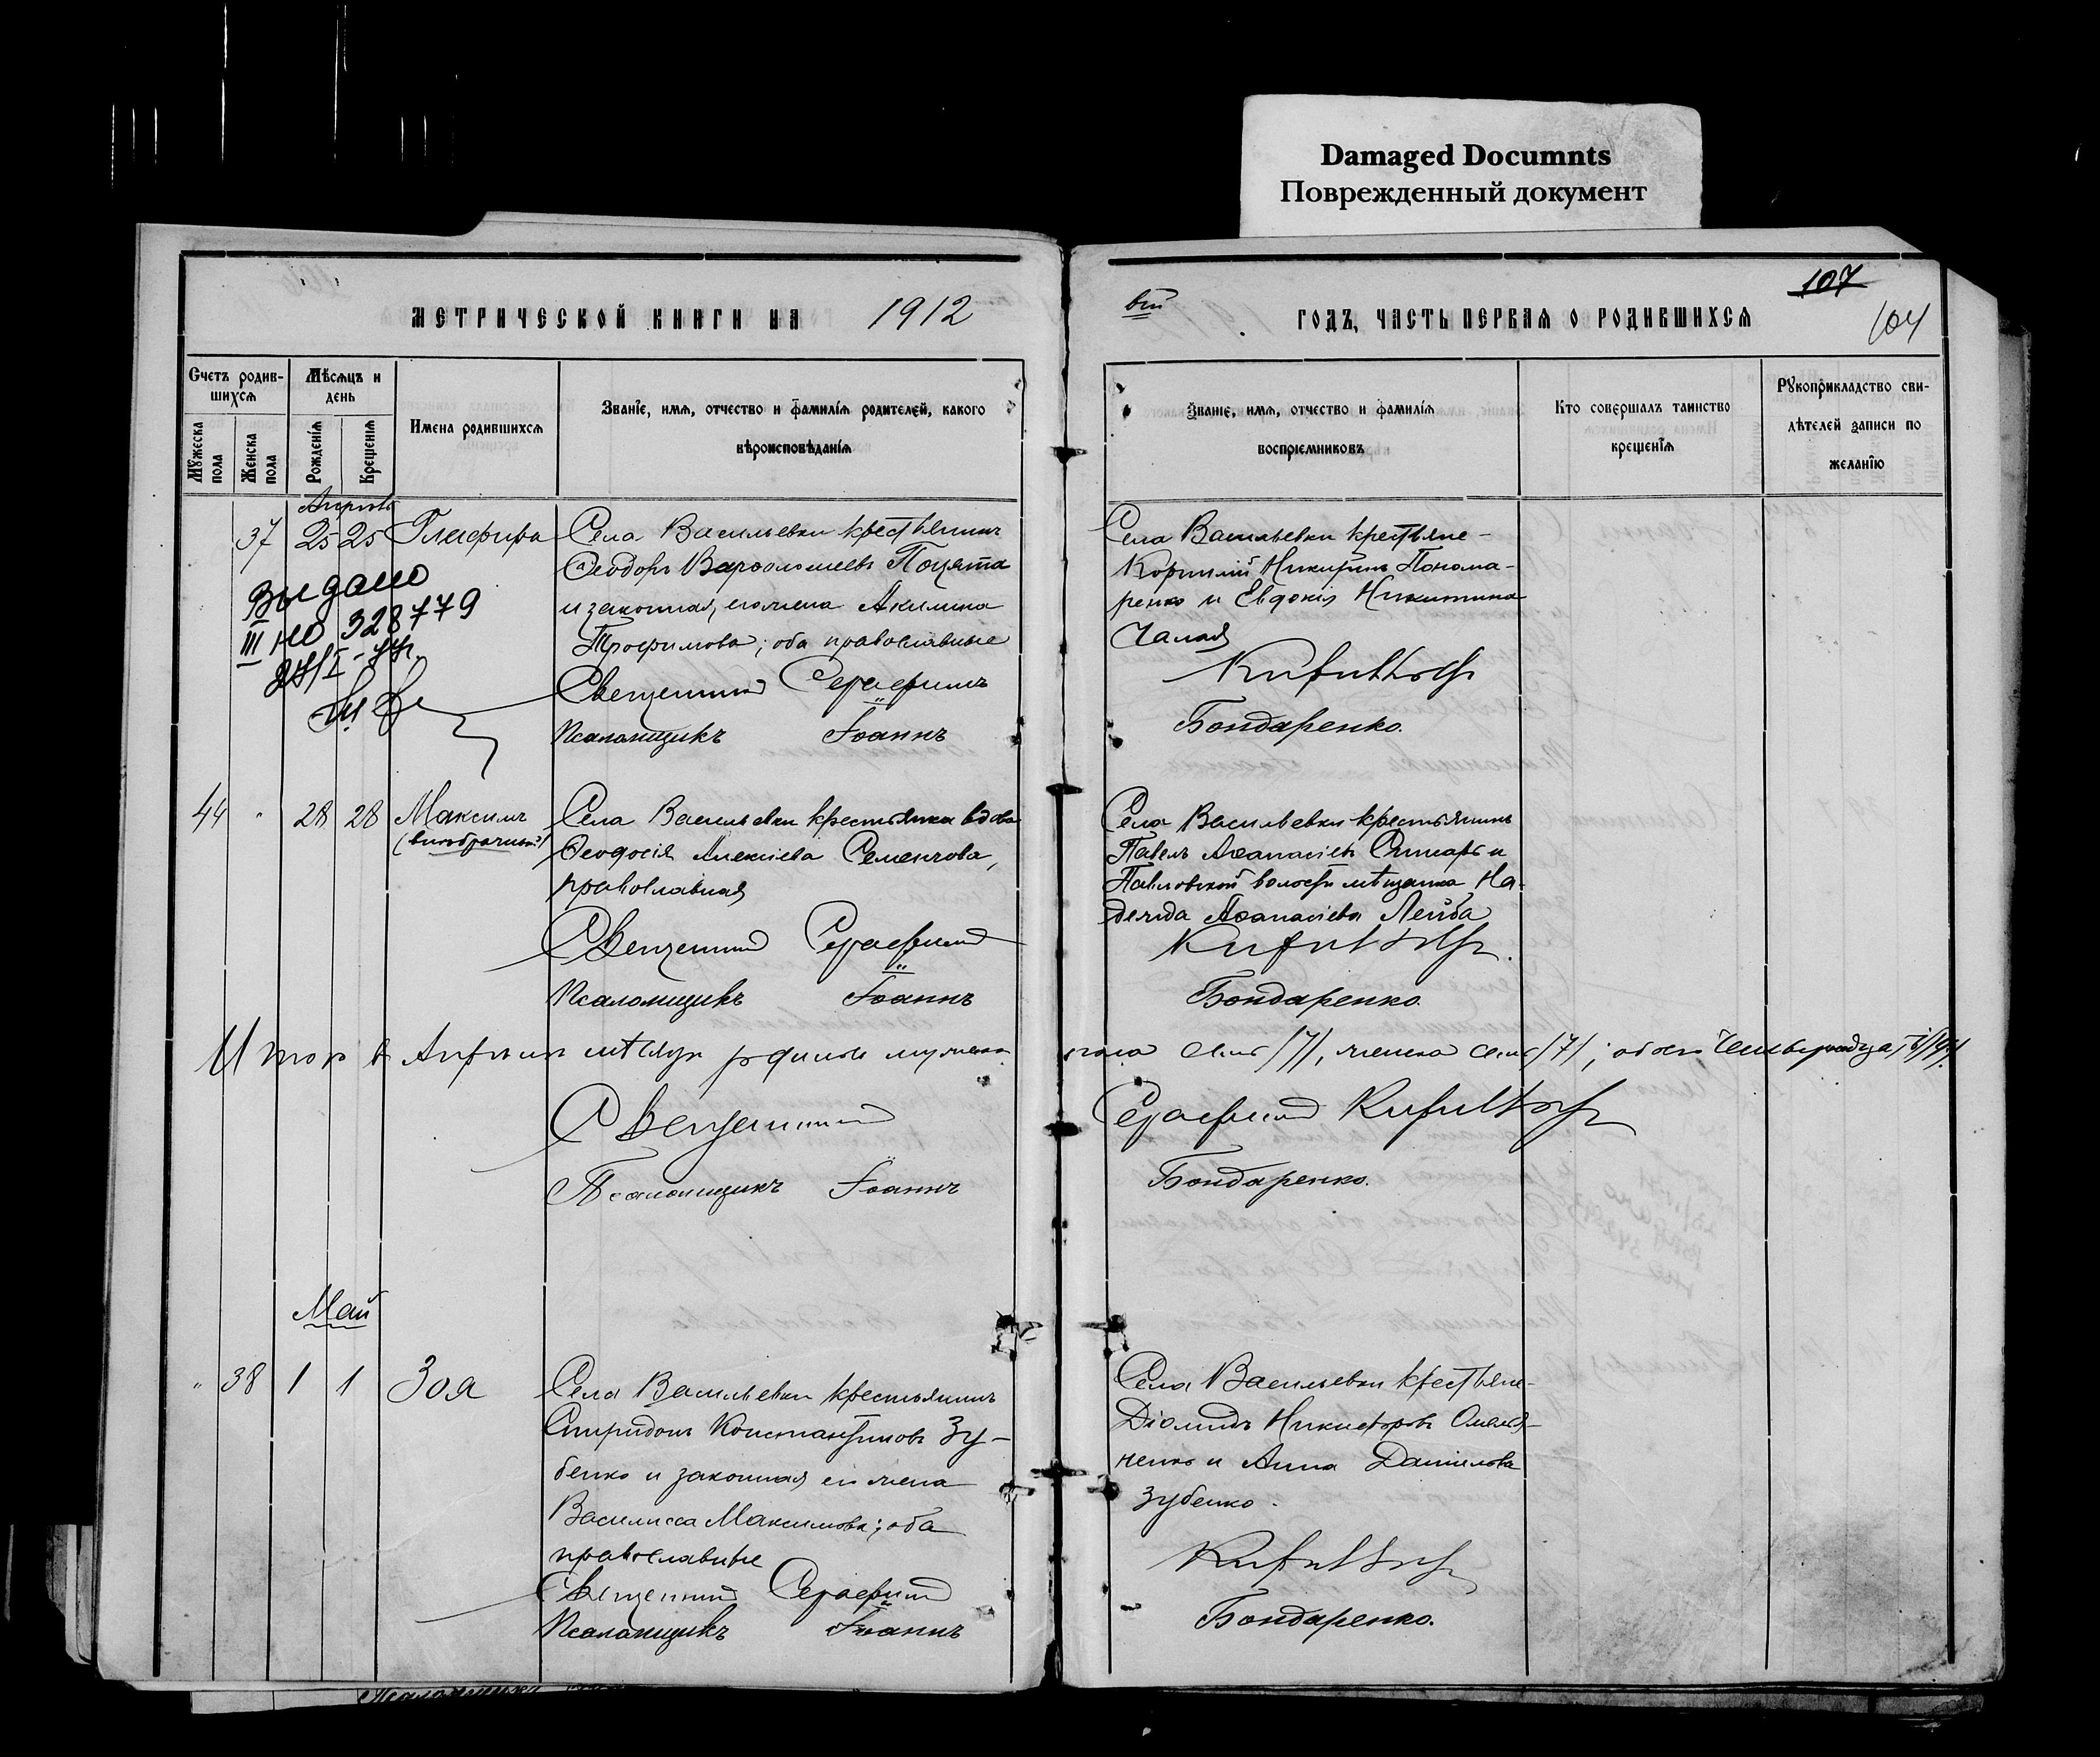 Damaged Documnts
Поврежденный документ
107
104
МЕТРИЧЕСКОЙ КНИГИ НА 1912
вый ГОДЪ, ЧАСТЬ ПЕРВАЯ О РОДИВШИХСЯ
Счетъ родив-
шихся
Мужеска пола
Женска пола
Мѣсяцъ и
день
Рожденія
Крещенія
Имена родившихся
Званіе, имя, отчество и фамилія родителей, какого
вѣроисповѣданія
Званіе, имя, отчество и фамилія
воспріемниковъ
Кто совершалъ таинство
крещенія
Рукоприкладство сви-
дѣтелей записи по
желанію
Апрѣль
37 25 25 Глафира
Выдано
III НО 328779
Села Васильевки крестьянинъ
Ѳеодоръ Варѳоломеевъ Поцята
и законная его жена Акилина
Трофимова; оба православные
Священникъ Серафимъ
Псаломщикъ Іоаннъ
Села Васильевки крестьяне -
Корнилій Никитинъ Понома-
ренко и Евдокія Никитина
Чалая
Бондаренко.
44 " 28 28 Максимъ
(внѣбрачный)
Села Васильевки крестьянка вдова
Ѳеодосія Алексіева Семенчова,
православная
Священникъ Серафимъ
Псаломщикъ Іоаннъ
Села Васильевки крестьянинъ
Павелъ Аѳанасіевъ и
Павловской волости мѣщанка На-
дежда Аѳанасіева Лейба
Бондаренко.
Итого въ Апрѣлѣ мѣсяцѣ родилось мужеска пола семь /7/, женска семь /7/; обоего четырнадцать /14/.
Священникъ Серафимъ
Псаломщикъ Іоаннъ Бондаренко.
Май
" 38 1 1 Зоя
Села Васильевки крестьянинъ
Спиридонъ Константиновъ Зу-
бенко и законная его жена
Василисса Максимова; оба
православные
Священникъ Серафимъ
Псаломщикъ Іоаннъ
Села Васильевки крестьяне -
Діомидъ Никифоровъ Омелья-
ненко и Анна Данилова
Зубенко.
Бондаренко.